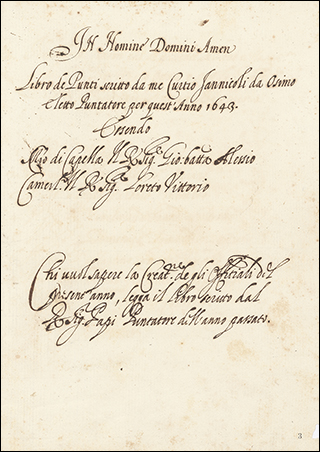 IN Nomine Domini Amen
Libro de Punti scritto da me Curtio Jannicoli da Osimo
eletto Puntatore per quest Anno 1643.
Essendo
Mro di Capella Il R. Sig. Gio: batta Alessio
Camerl. Il R. Sig. Loreto Vittorio
Chi vuol sapere la Creat.ne de gli Officiali del
presente anno, legga il libro scritto dal
R. Sig. Papi Puntatore dell anno passato.
3